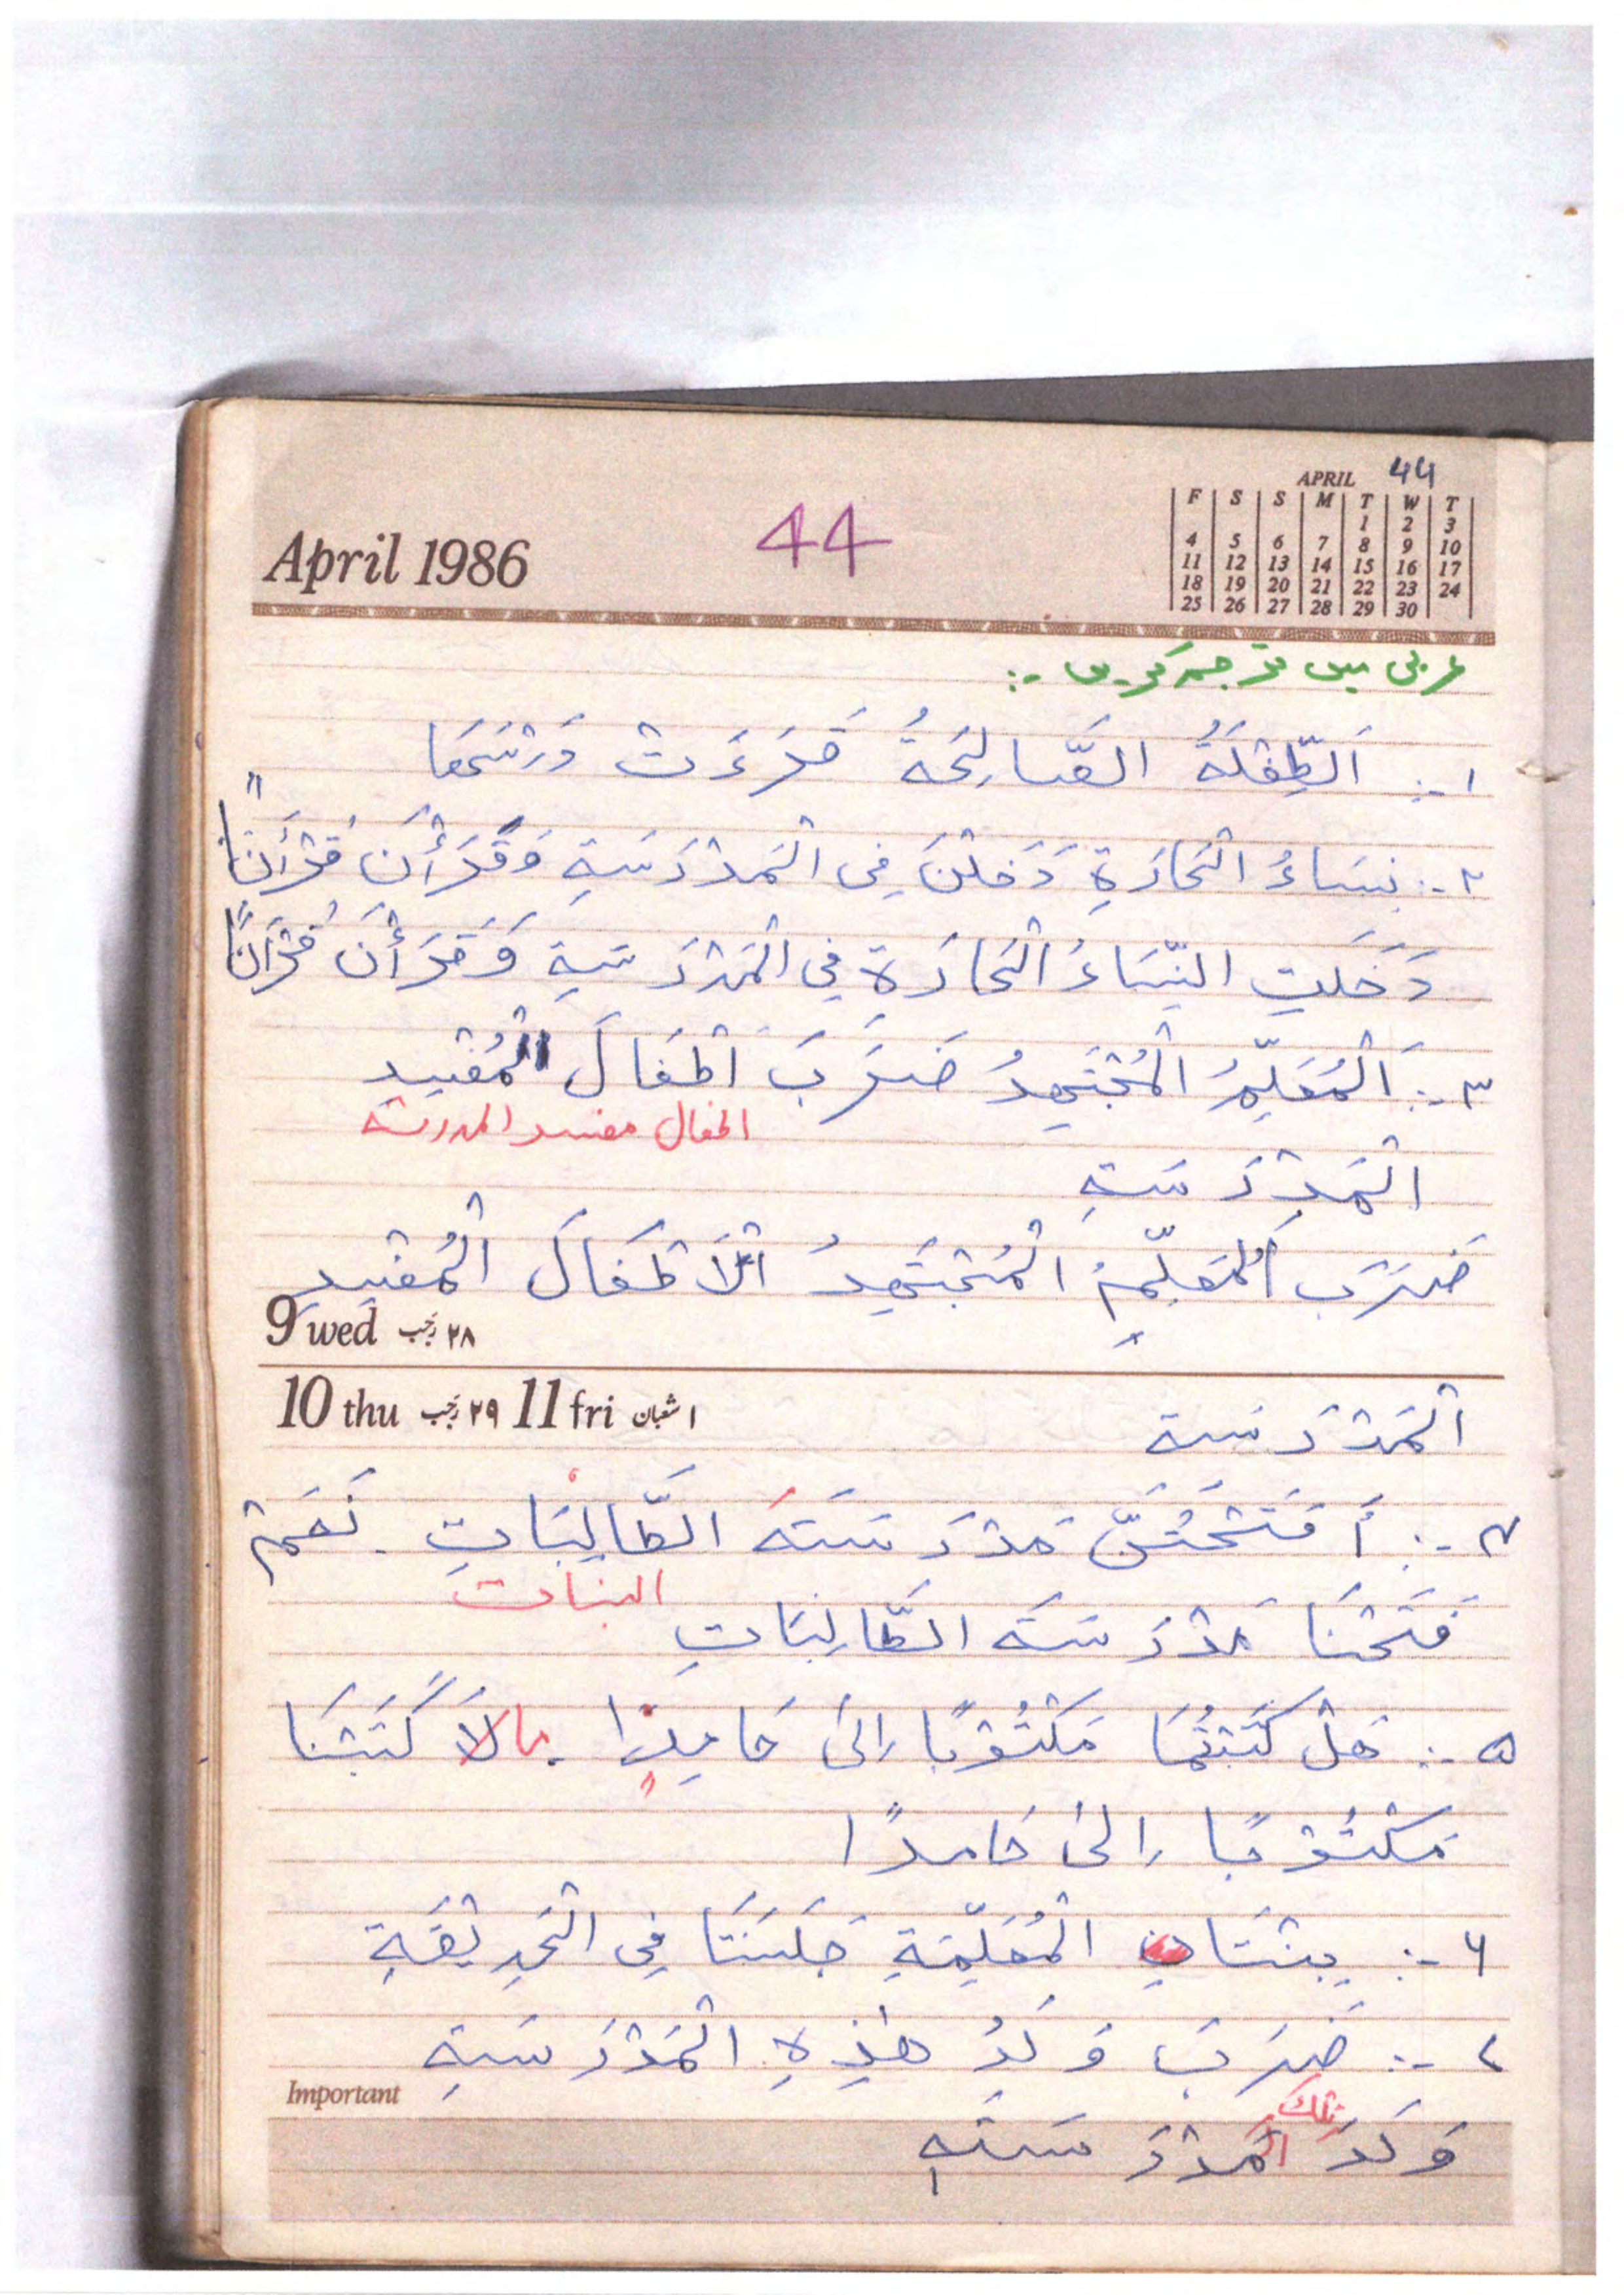 44
APRIL
F S S M T W T
1 2 3
4 5 6 7 8 9 10
11 12 13 14 15 16 17
18 19 20 21 22 23 24
25 26 27 28 29 30
April 1986
44
عربی میں ترجمہ کریں :-
۱ :- اَلطِّفْلَةُ الصَّالِحَةُ قَرَءَتْ دَرْسَهَا
۲ :- نِسَاءُ الْحَارَةِ دَخَلْنَ فِی الْمَدْرَسَةِ وَقَرَأْنَ قُرْأَنًا
دَخَلَتِ النِّسَاءُ الْحَارَة فِی الْمَدْرَسَةِ وَقَرَأْنَ قُرْآنًا
۳ :- اَلْمُعَلِّمُ الْمُجْتَهِدُ ضَرَبَ اَطْفَالَ الْمُفْسِدِ
اطفال مفسد المدرسة
الْمَدْرَسَةِ
ضَرَبَ الْمُعَلِّمُ الْمُجْتَهِدُ اَلْاَطْفَالَ الْمُفْسِدِ
9 wed ۲۸ رجب
10 thu ۲۹ رجب 11 fri ۱ شعبان
الْمَدْرَسَة
۴ :- أَ فَتَحْتُنَّ مَدْرَسَةَ الطَّالِبَاتِ . نَعَمْ
البنات
فَتَحْنَا مَدْرَسَةَ الطَّالِبَاتِ
۵ :- هَلْ كَتَبْتُمَا مَكْتُوْبًا اِلىٰ حَامِدًا . مَا لَا كَتَبْنَا
مَكْتُوْبًا اِلىٰ حَامدًا
۶ :- بِنْتَانِ الْمُعَلِّمَةِ جَلَسَتَا فِی الْحَدِيْقَةِ
۷ :- ضَرَبَ وَلَدُ هٰذِهِ الْمَدْرَسَةِ
تلك
Important
وَلَدَ الْمَدْرَسَةِ